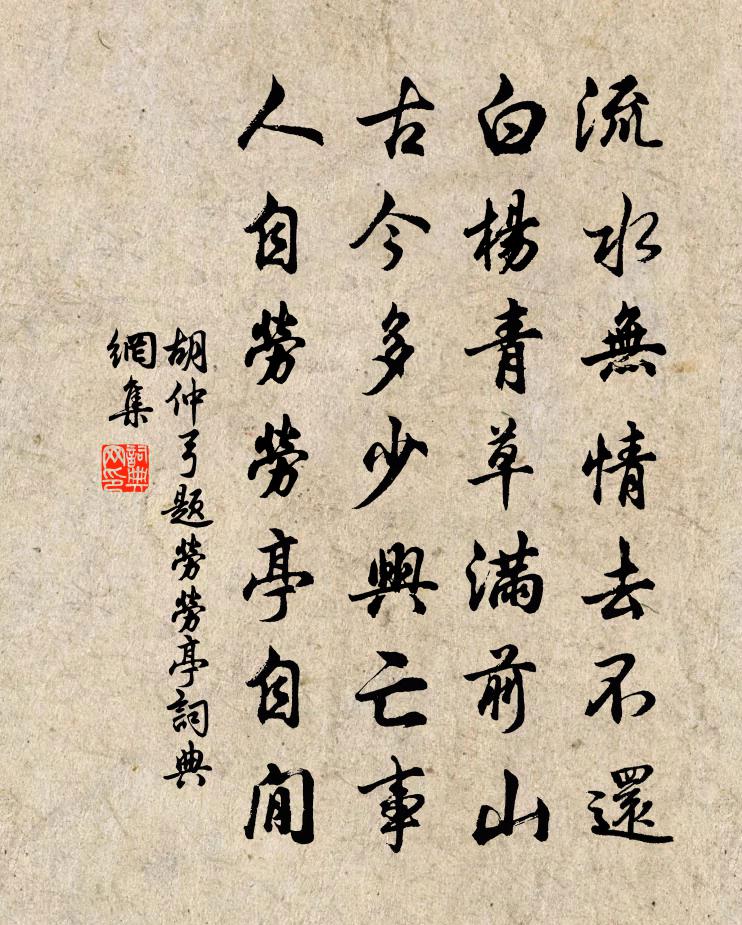 流水無情去不還
白楊青草滿前山
古今多少興亡事
人自勞勞亭自閒
胡仲弓題勞勞亭詞典
網集
詞典
网印